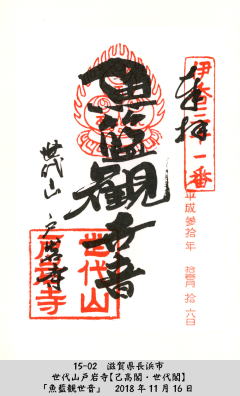 伊香三十三番
奉拝
平成参拾年 拾壱月 拾六日
魚籃観世音
世代山 戸岩寺
世代山
戸岩寺
15-02 滋賀県長浜市
世代山戸岩寺【己高閣・世代閣】
「魚藍観世音」 2018年11月16日